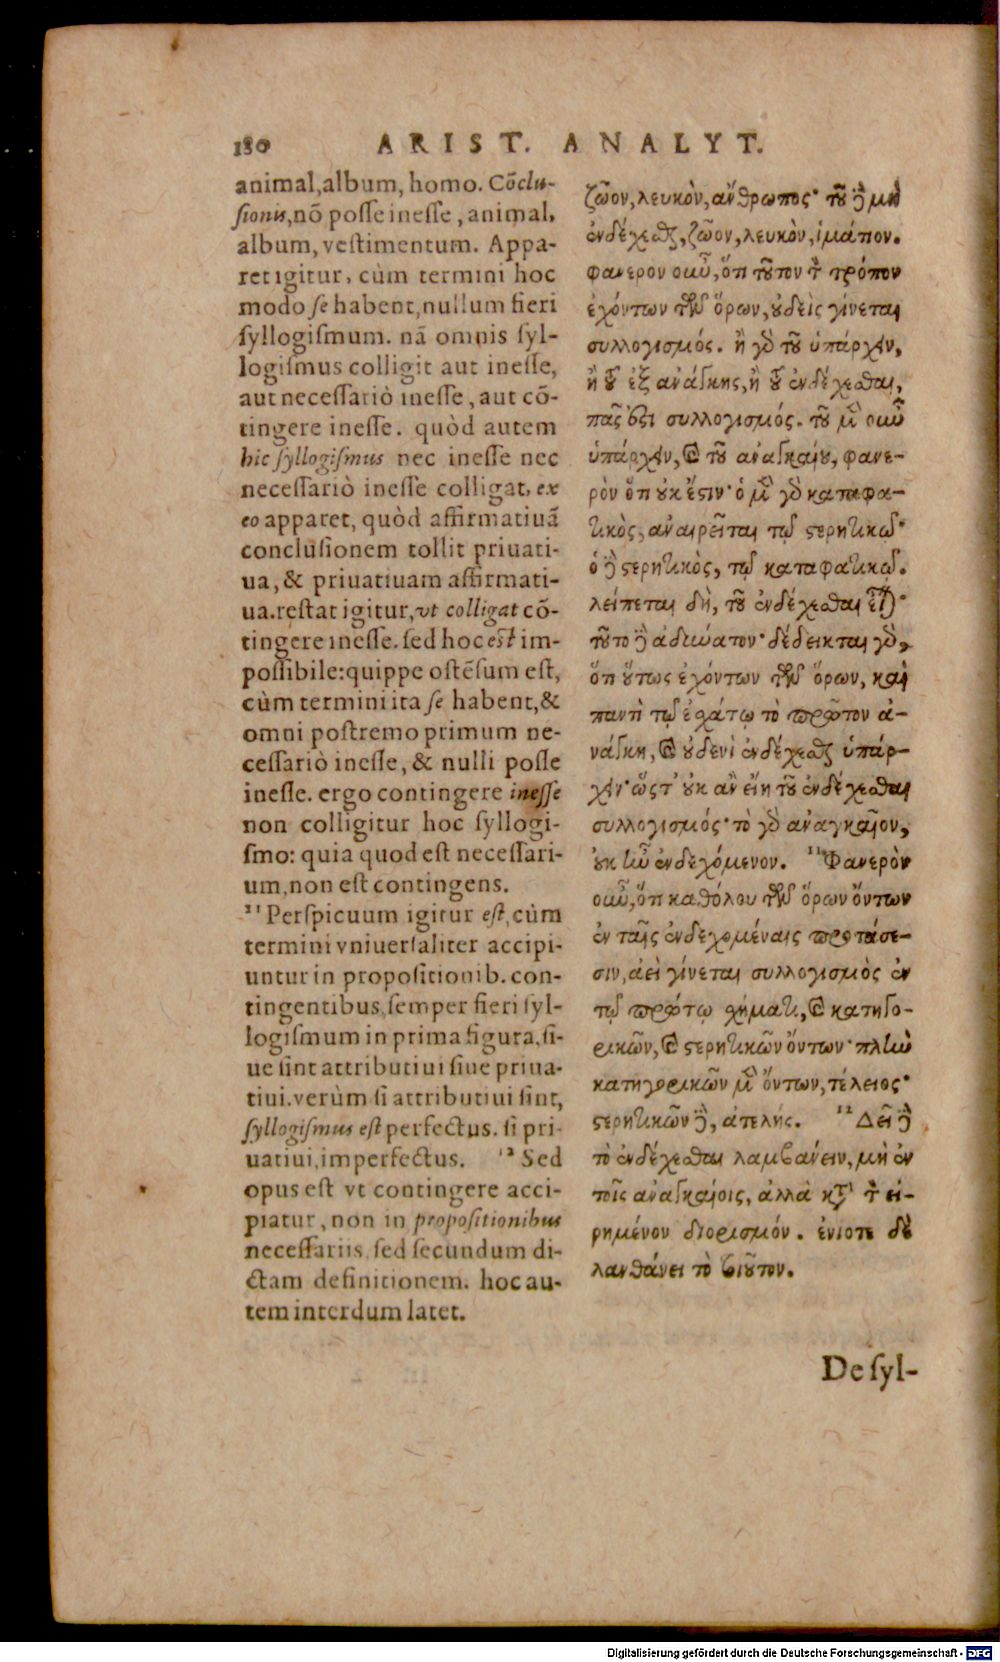 180 ARIST. ANALYT.
animal, album, homo. Cõclu-
ſionis, nõ poſſe ineſſe, animal,
album, veſtimentum. Appa-
ret igitur, cùm termini hoc
modo ſe habent, nullum fieri
ſyllogiſmum. nã omnis ſyl-
logiſmus colligit aut ineſſe,
aut neceſſariò ineſſe, aut cõ-
tingere ineſſe. quòd autem
hic ſyllogiſmus nec ineſſe nec
neceſſariò ineſſe colligat, ex
eo apparet, quòd affirmatiuã
concluſionem tollit priuati-
ua, & priuatiuam affirmati-
ua. reſtat igitur, vt colligat cõ-
tingere ineſſe. ſed hoc eſt im-
poſſibile: quippe oſtẽſum eſt,
cùm termini ita ſe habent, &
omni poſtremo primum ne-
ceſſariò ineſſe, & nulli poſſe
ineſſe. ergo contingere ineſſe
non colligitur hoc ſyllogi-
ſmo: quia quod eſt neceſſari-
um, non eſt contingens.
11 Perſpicuum igitur eſt, cùm
termini vniuerſaliter accipi-
untur in propoſitionib. con-
tingentibus, ſemper fieri ſyl-
logiſmum in prima figura, ſi-
ue ſint attributiui ſiue priua-
tiui. verùm ſi attributiui ſint,
ſyllogiſmus eſt perfectus. ſi pri-
uatiui, imperfectus. 12 Sed
opus eſt vt contingere acci-
piatur, non in propoſitionibus
neceſſariis, ſed ſecundum di-
ctam definitionem. hoc au-
tem interdum latet.
ζῶον, λευκὸν, ἄνθρωπος· τοῦ δὲ μὴ
ἐνδέχεσθαι, ζῶον, λευκὸν, ἱμάτιον.
φανερὸν οὖν, ὅτι τοῦτον τὸν τρόπον
ἐχόντων τῶν ὅρων, οὐδεὶς γίνεται
συλλογισμός. ἢ γὰρ τοῦ ὑπάρχειν,
ἢ τοῦ ἐξ ἀνάγκης, ἢ τοῦ ἐνδέχεσθαι,
πᾶς ἐστι συλλογισμός. τοῦ μὲν οὖν
ὑπάρχειν, καὶ τοῦ ἀναγκαίου, φανε-
ρὸν ὅτι οὐκ ἔστιν· ὁ μὲν γὰρ καταφα-
τικὸς, ἀναιρεῖται τῷ στερητικῷ·
ὁ δὲ στερητικὸς, τῷ καταφατικῷ.
λείπεται δὴ, τοῦ ἐνδέχεσθαι εἶναι·
τοῦτο δὲ ἀδύνατον· δέδεικται γὰρ,
ὅτι οὕτως ἐχόντων τῶν ὅρων, καὶ
παντὶ τῷ ἐσχάτῳ τὸ πρῶτον ἀ-
νάγκη, καὶ οὐδενὶ ἐνδέχεσθαι ὑπάρ-
χειν· ὥστ’ οὐκ ἂν εἴη τοῦ ἐνδέχεσθαι
συλλογισμός· τὸ γὰρ ἀναγκαῖον,
οὐκ ἦν ἐνδεχόμενον. 11 Φανερὸν
οὖν, ὅτι καθόλου τῶν ὅρων ὄντων
ἐν ταῖς ἐνδεχομέναις προτάσε-
σιν, ἀεὶ γίνεται συλλογισμὸς ἐν
τῷ πρώτῳ σχήματι, καὶ κατηγο-
ρικῶν, καὶ στερητικῶν ὄντων· πλὴν
κατηγορικῶν μὲν ὄντων, τέλειος·
στερητικῶν δὲ, ἀτελής. 12 Δεῖ δὲ
τὸ ἐνδέχεσθαι λαμβάνειν, μὴ ἐν
τοῖς ἀναγκαίοις, ἀλλὰ κατὰ τὸν εἰ-
ρημένον διορισμόν. ἐνίοτε δὲ
λανθάνει τὸ τοιοῦτον.
De ſyl-
Digitalisierung gefördert durch die Deutsche Forschungsgemeinschaft - DFG